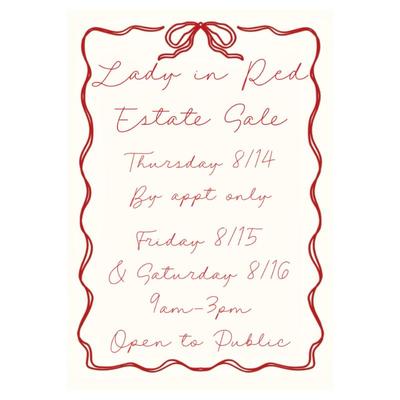 Lady in Red
Estate Sale
Thursday 8/14
By appt only
Friday 8/15
& Saturday 8/16
9am-3pm
Open to Public